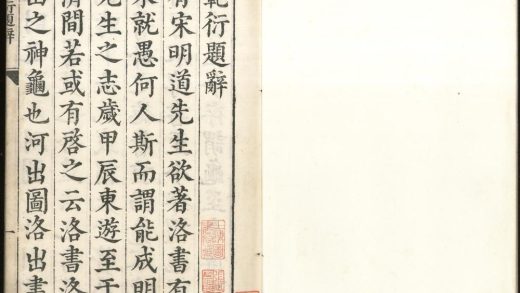 範衍題辭
有宋明道先生欲著洛書有
未就愚何人斯而謂能成明
先生之志歲甲辰東遊至于
濟間若或有啓之云洛書洛
出之神龜也河出圖洛出書
衍題辭